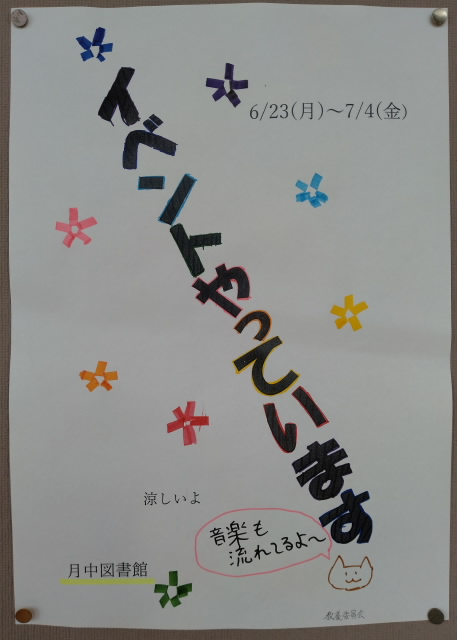 6/23(月)～7/4(金)
イベントやっています
涼しいよ
音楽も
流れてるよ～
月中図書館
教養委員会